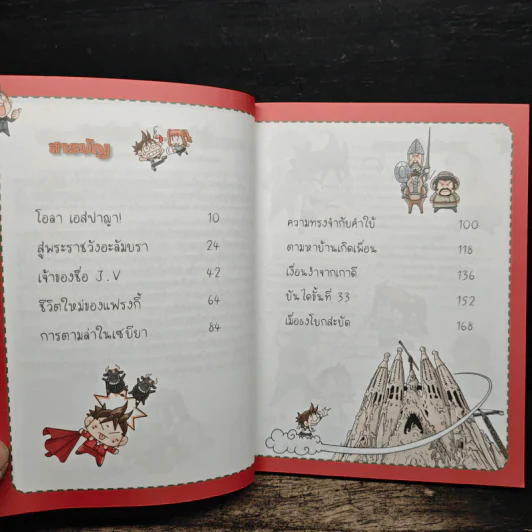 สารบัญ
โอลา เอส์ปาญา! 10
สู่พระราชวังอะลัมบรา 24
เจ้าของชื่อ J.V 42
ชีวิตใหม่ของแฟรงกี้ 64
การตามล่าในเซบียา 84
ความทรงจำกับคำใบ้ 100
ตามหาบ้านเกิดเพื่อน 118
เงื่อนงำจากเกาดี 136
บันไดขั้นที่ 33 152
เมื่อธงโบกสะบัด 168